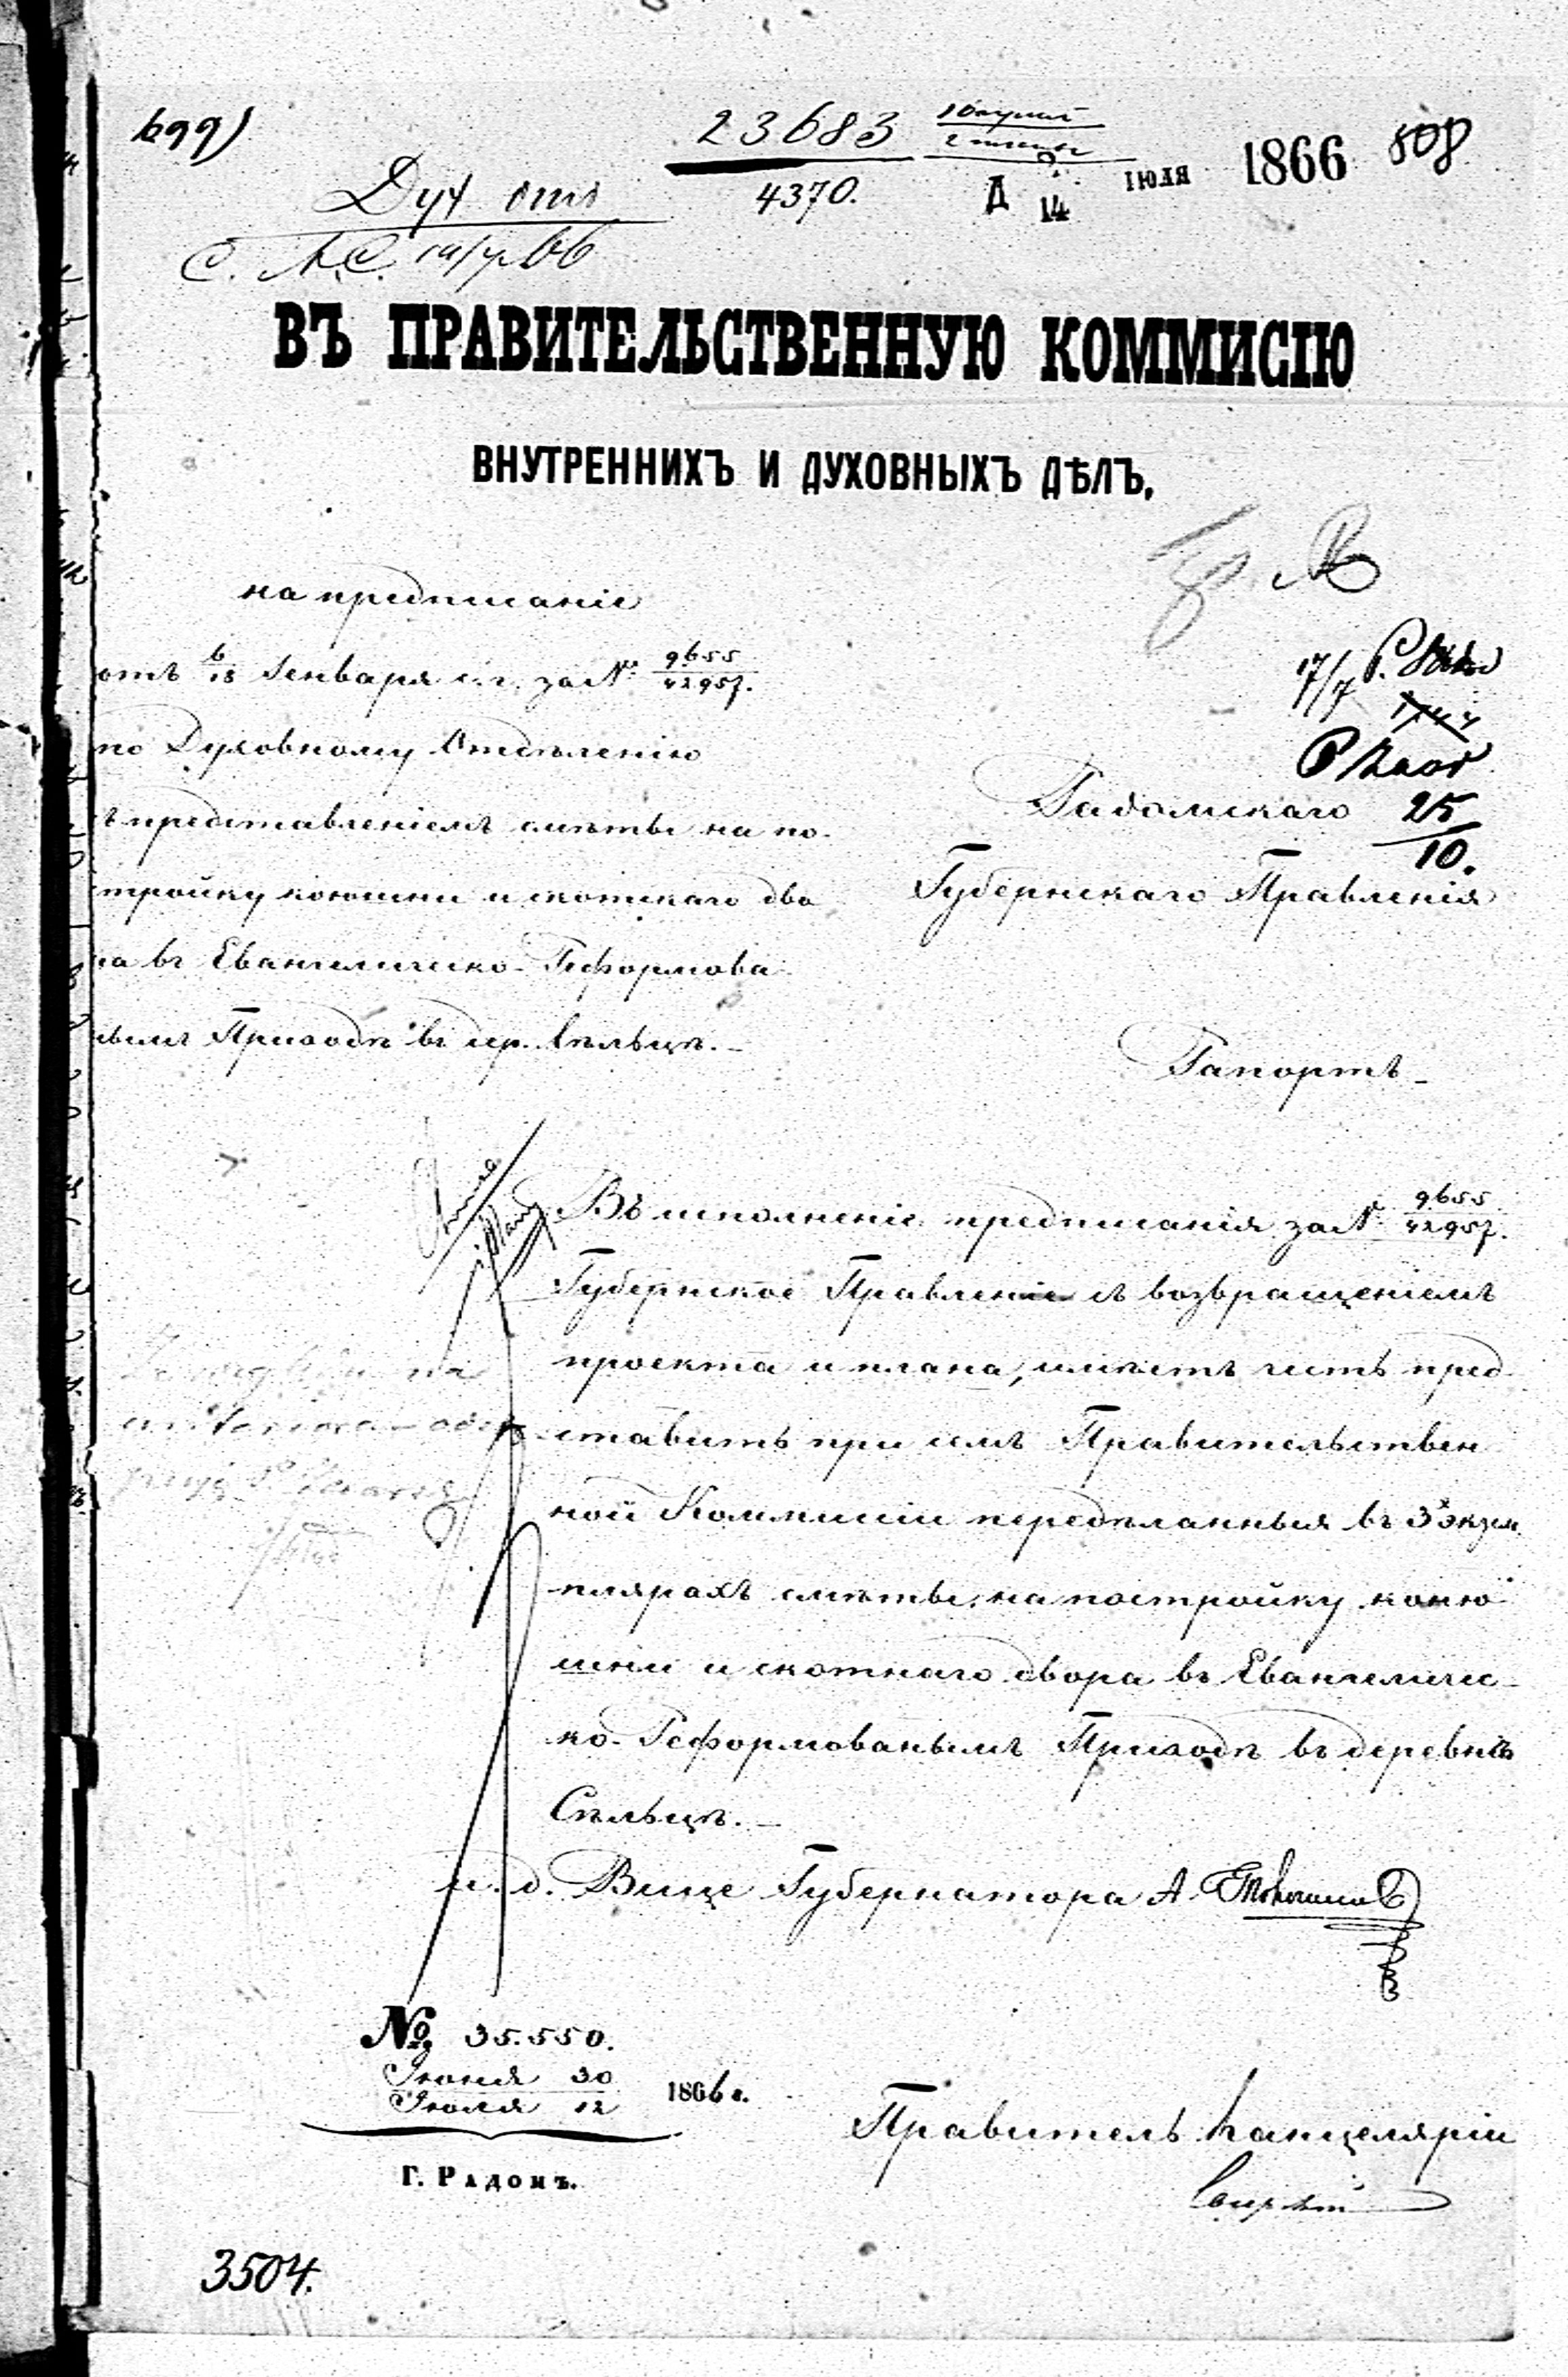 699)
23683
4370.
Д 2/14 ІЮЛЯ 1866 508
Дух отд
ВЪ ПРАВИТЕЛЬСТВЕННУЮ КОММИСІЮ
ВНУТРЕННИХЪ И ДУХОВНЫХЪ ДѢЛЪ.
на предписаніе
отъ 6/18 Генваря с. г. за № 9655/42957.
по Духовному Отдѣленію
ъ представленіемъ смѣты на по-
тройку конюшни и скотскаго дво
ра въ Евангелическо-Реформова
нымъ Приходѣ въ дер. Сѣльцѣ.-
17/7
Радомскаго 25/10.
Губернскаго Правленія
Рапортъ
Въ исполненіе предписанія за № 9655/42957.
Губернское Правленіе съ возвращеніемъ
проекта и плана, имѣетъ честь пред
ставить при семъ Правительствен
ной Коммисіи передѣланныя въ 3х экзем
плярахъ смѣты, на постройку коню
шни и скотнаго двора въ Евангеличес-
ко-Реформованымъ Приходѣ въ деревнѣ
Сѣльцѣ.-
и. д. Вице Губернатора А.
№ 35.550.
Іюня 30
Іюля 12 1866 г.
Г. РАДОМЪ.
Правитель Канцеляріи
3504.